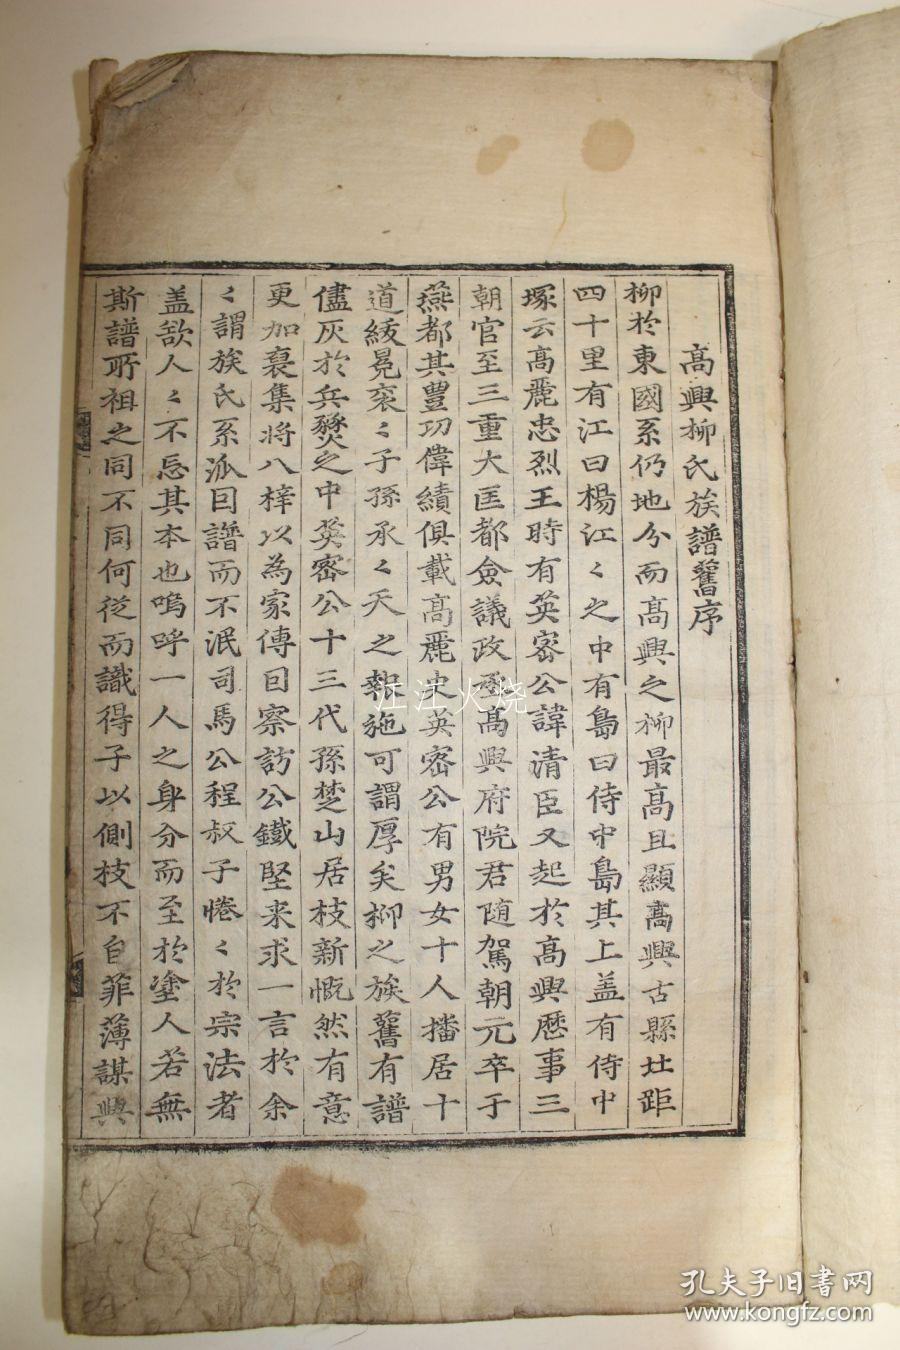 高興柳氏族譜舊序
柳於東國系仍地分而高興之柳最高且顯高興古縣灶距
四十里有江曰楊江々之中有島曰侍中島其上盖有侍中
塚云高麗忠烈王時有英密公諱清臣又起於高興歷事三
朝官至三重大匡都僉議政丞高興府院君随駕朝元卒于
燕都其豐功偉績俱載高麗史英密公有男女十人播居十
道綾冕衮々子孫承々天之報施可謂厚矣柳之族舊有譜
儘灰於兵燹之中英密公十三代孫楚山居枝新慨然有意
更加裒集將入梓以為家傳曰察訪公鐵堅来求一言於余
々謂族氏系派因譜而不泯司馬公程叔子惓々於宗法者
盖欲人々不忘其本也嗚呼一人之身分而至於塗人若無
斯譜所祖之同不同何從而識得子以側枝不自菲薄謀與
汪江火烧
孔夫子旧書网
www.kongfz.com